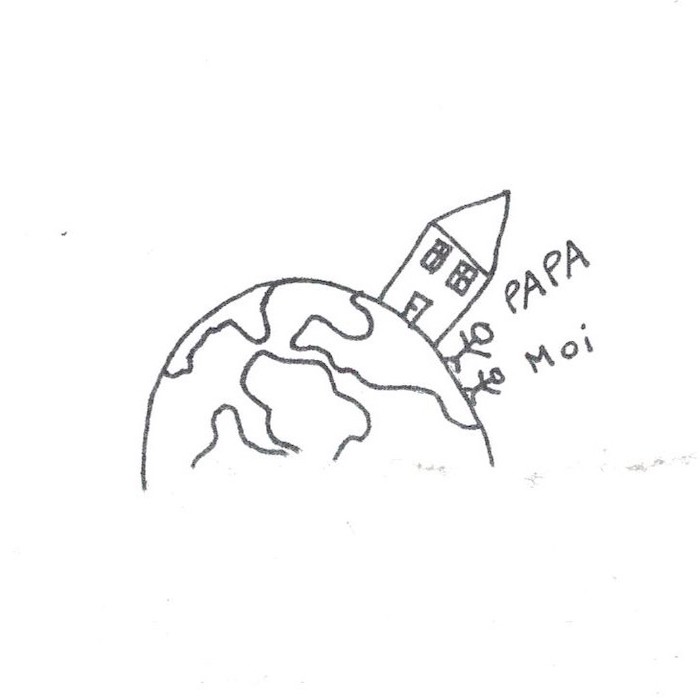 PAPA
Moi